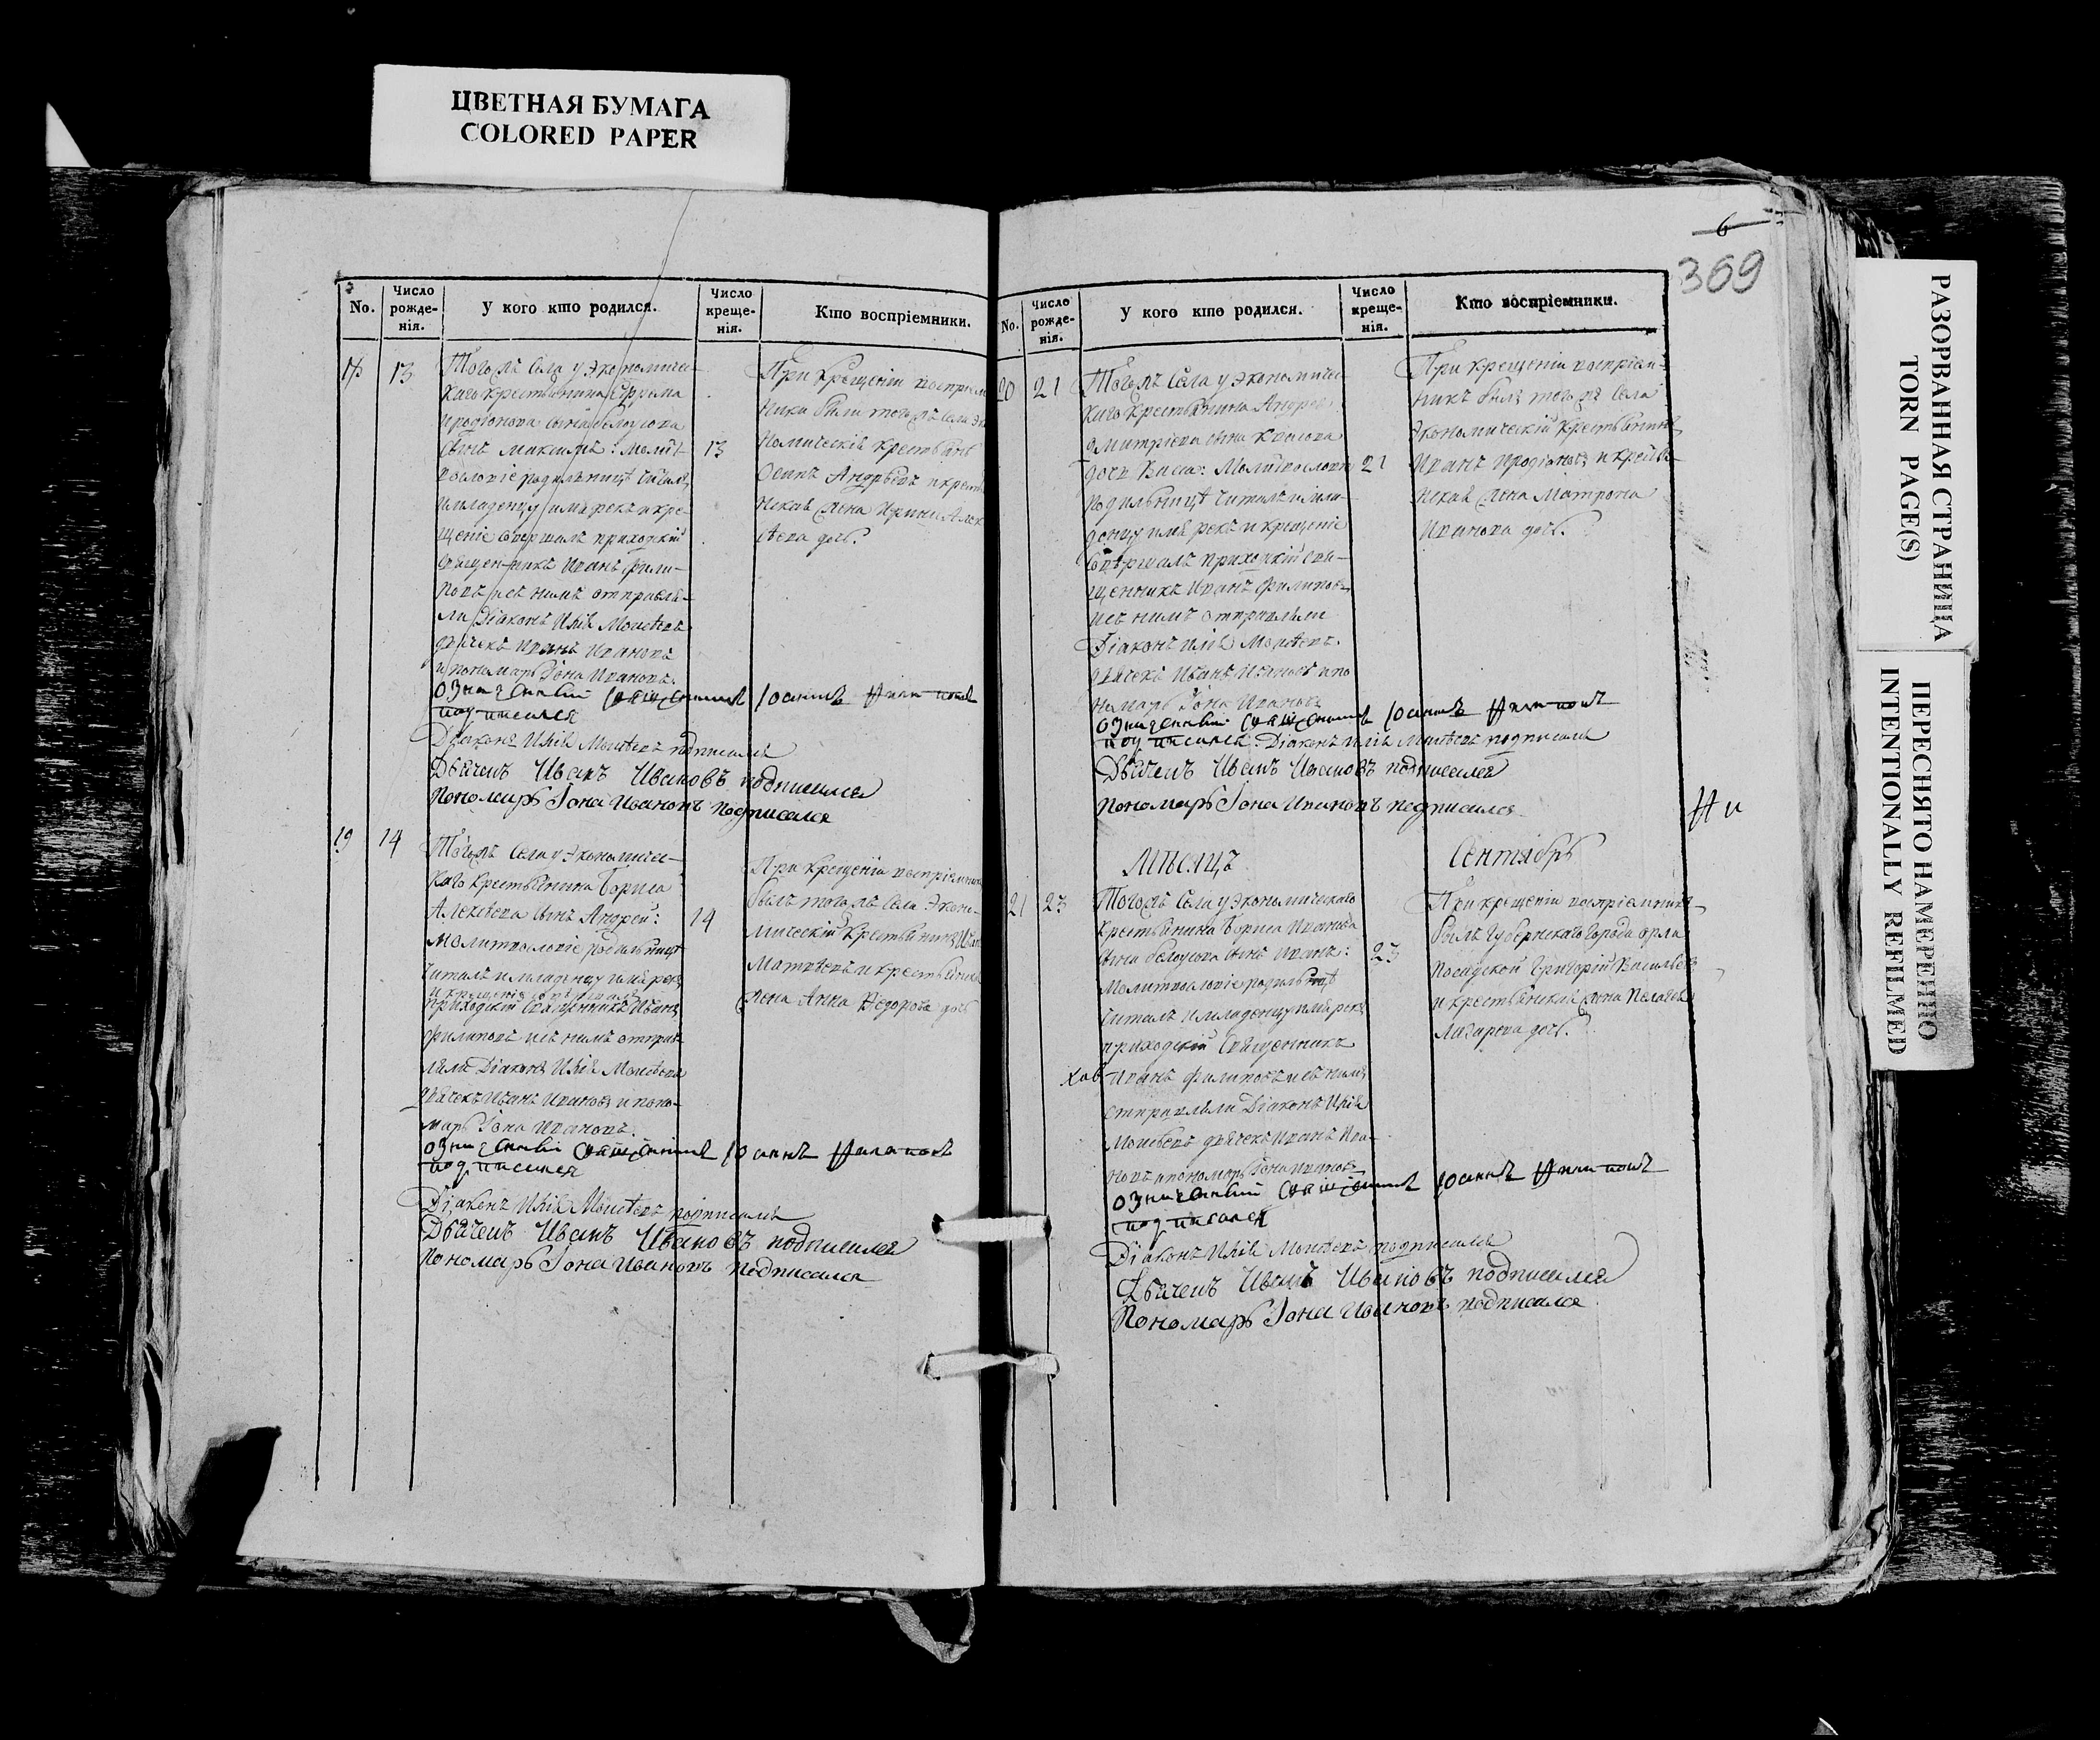 ЦВЕТНАЯ БУМАГА
COLORED PAPER
No.
Число рожденія.
У кого кто родился.
Число крещенія.
Кто воспріемники.
18
13
Тогожъ Села у Экономичес-
каго крестьянина Ефрема
Иродіонова сына белоусова
Сынъ максимъ: молит-
вословіе родильницѣ читалъ
имладенцу имя рекъ икре-
щеніе совершалъ приходскій
Священникъ Иванъ фили-
повъ исъ нимъ отправля-
ли Діаконъ Илія Моисѣевъ
дьячекъ Иванъ Ивановъ
ипономарь Іона Ивановъ.
означенный священникъ Іоаннъ Филиповъ
подписался
Діаконъ Илія Моисѣевъ подписался
Дьячекъ Иванъ Ивановъ подписался
Пономарь Іона Ивановъ подписался
13
При крещеніи воспріем
ники были тогожъ Села Эко
номическій крестьянъ
Осипъ Андрѣевъ икресть
нская жена Ирина Алек
сѣева дочь.
19
14
Тогожъ Села у Экономичес-
каго крестьянина Бориса
Алексѣева сынъ Андрей:
Молитвословіе родильницѣ
читалъ имладенцу имя рекъ
икрещеніе совершалъ
приходскій священникъ Иванъ
филиповъ исъ нимъ отправ
ляли Діаконъ Илія Моисѣевъ
дьячекъ Иванъ Ивановъ ипоно-
марь Іона Ивановъ.
означенный священникъ Іоаннъ Филиповъ
подписался
Діаконъ Илія Моисѣевъ подписался
Дьячекъ Иванъ Ивановъ подписался
Пономарь Іона Ивановъ подписался
14
При крещеніи воспріемник
былъ тогожъ Села Эконо-
мическій крестьянинъ
Матвѣевъ икрестьянская
жена Анна Федорова дочь
6
369
No.
Число рожденія.
У кого кто родился.
Число крещенія.
Кто воспріемники.
20
21
Тогожъ Села у Экономичес-
каго крестьянина Андрея
дмитріева сына
дочь Васса: Молитвословіе
родильницѣ читалъ имла-
денцу имя рекъ икрещеніе
совершалъ приходскій свя-
щенникъ Иванъ филиповъ
исъ нимъ отправляли
Діаконъ Илія Моисѣевъ.
дьячекъ Иванъ Ивановъ ипо
номарь Іона Ивановъ
означенный священникъ Іоаннъ Филиповъ
подписался. Діаконъ Илія Моисѣевъ подписался
Дьячекъ Иванъ Ивановъ подписался
Пономарь Іона Ивановъ подписался
21
При крещеніи воспріем-
никъ былъ тогожъ Села
Экономическій крестьянинъ
Иванъ Иродіоновъ икрестья-
нская жена Матрона
Иванова дочь.
Мѣсяцъ
Сентябрь
21
23
Тогожъ Села у Экономическаго
крестьянина Бориса Иванова
сына белоусова сынъ Иванъ:
Молитвословіе родильницѣ
читалъ имладенцу имя рекъ
приходскій Священникъ
Иванъ филиповъ исъ нимъ
отправляли Діаконъ Илія
Моисѣевъ дьячекъ Иванъ Ива-
новъ ипономарь Іона Ивановъ
означенный священникъ Іоаннъ Филиповъ
подписался
Діаконъ Илія Моисѣевъ подписался
Дьячекъ Иванъ Ивановъ подписался
Пономарь Іона Ивановъ подписался
23
При крещеніи воспріемникъ
былъ Губернскаго города орла
посадской Григорій Васильевъ
икрестьянская жена Пелагея
Лазарева дочь.
РАЗОРВАННАЯ СТРАНИЦА
TORN PAGE(S)
ПЕРЕСНЯТО НАМЕРЕННО
INTENTIONALLY REFILMED